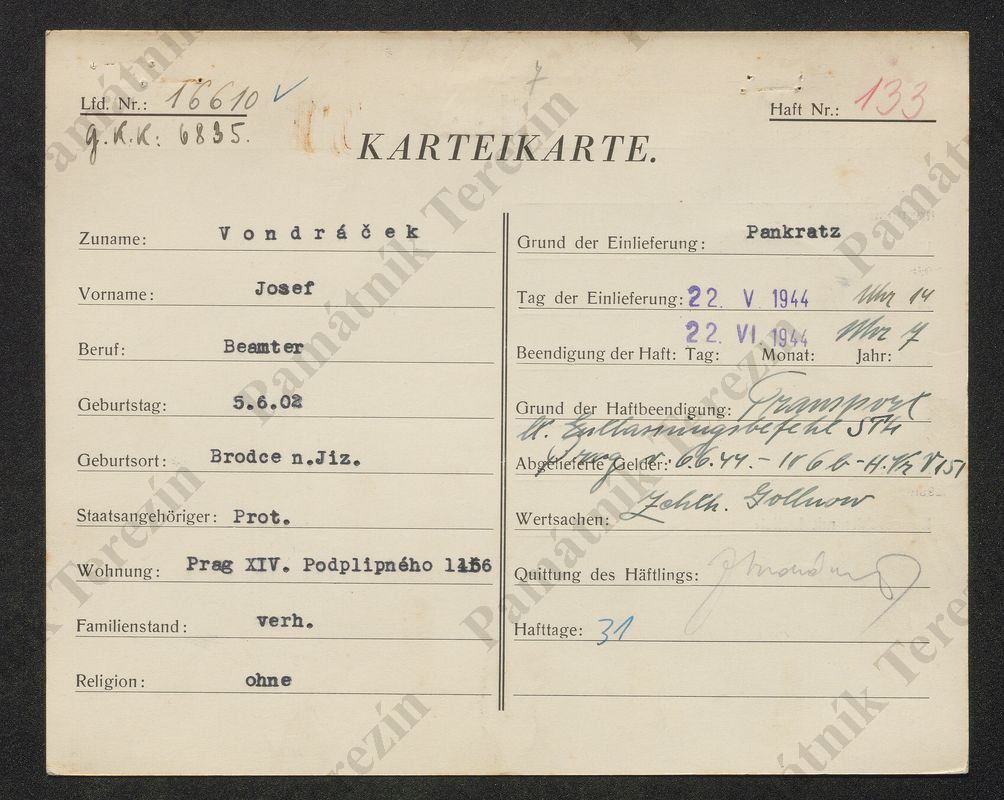 7
Lfd. Nr.: 16610 ✓
Haft Nr.: 133
g.K.K: 6835.
KARTEIKARTE.
Zuname: Vondráček
Vorname: Josef
Beruf: Beamter
Geburtstag: 5.6.02
Geburtsort: Brodce n.Jiz.
Staatsangehöriger: Prot.
Wohnung: Prag XIV. Podplipného
Familienstand: verh.
Religion: ohne
Grund der Einlieferung: Pankratz
Tag der Einlieferung: 22. V. 1944 Uhr 14
22. VI. 1944 Uhr 7
Beendigung der Haft: Tag: Monat: Jahr:
Grund der Haftbeendigung: Transport
lt. Entlassungsbefehl
Abgelieferte Gelder: Prag 6.6.44. - IV 6 b -
Wertsachen: Zchth. Gollnow
Quittung des Häftlings:
Hafttage: 31
Památník Terezín